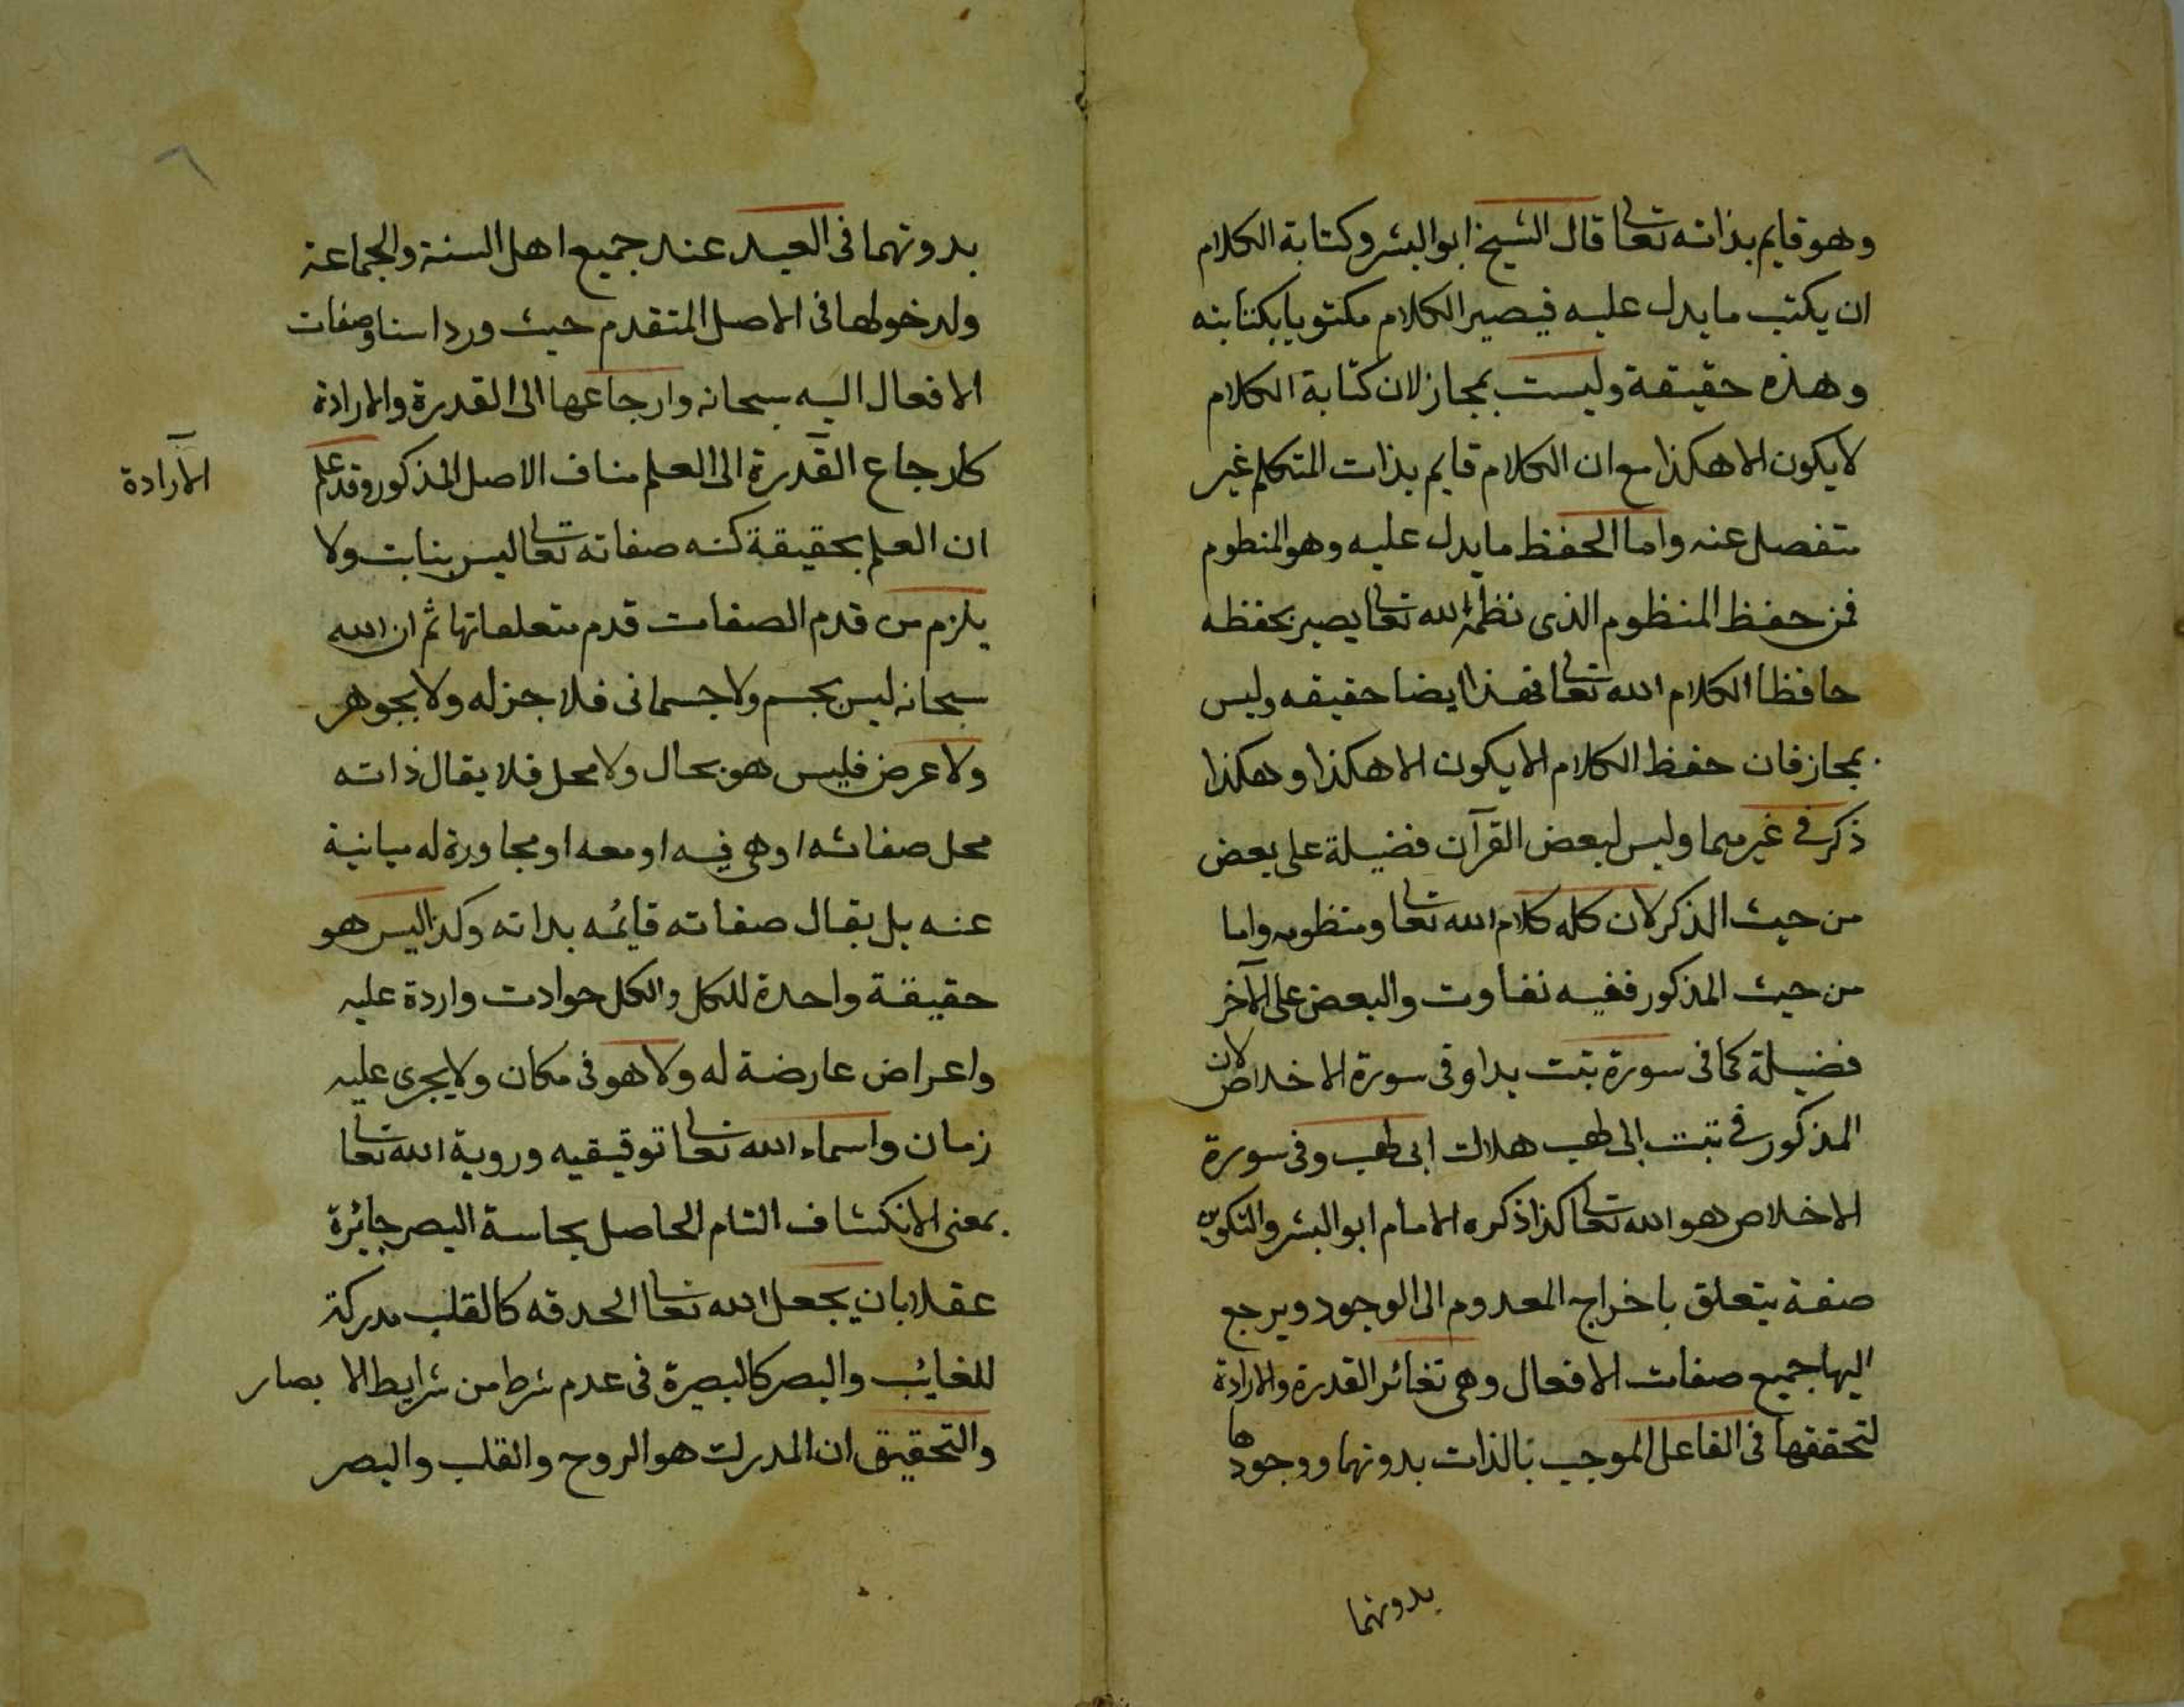 وهو قايم بذاته تعالى قال الشيخ ابو البشر وكتابة الكلام
ان يكتب ما يدل عليه فيصير الكلام مكتوبا بكتابته
وهذه حقيقة وليست بمجاز لان كتابة الكلام
لا يكون الا هكذا مع ان الكلام قايم بذات المتكلم غير
منفصل عنه واما الحفظ ما يدل عليه وهو المنظوم
فمن حفظ المنظوم الذى نظمه الله تعالى يصير بحفظه
حافظا الكلام الله تعالى فهذا ايضا حقيقه وليس
بمجاز فان حفظ الكلام لا يكون الا هكذا وهكذا
ذكر فى غيرهما وليس لبعض القرآن فضيلة على بعض
من حيث الذكر لان كله كلام الله تعالى ومنظومه واما
من حيث المذكور ففيه تفاوت والبعض على الآخر
فضيلة كما فى سورة تبت يدا وفى سورة الاخلاص لان
المذكور فى تبت ابى لهب هلاك ابى لهب وفى سورة
الاخلاص هو الله تعالى كذا ذكره الامام ابو البشر والتكوين
صفة يتعلق باخراج المعدوم الى الوجود ويرجع
اليها جميع صفات الافعال وهى تغائر القدرة والارادة
لتحققها فى الفاعل الموجب بالذات بدونهما ووجودها
بدونهما
بدونهما فى العبد عند جميع اهل السنة والجماعة
ولدخولها فى الاصل المتقدم حيث ورد اسناد صفات
الافعال اليه سبحانه وارجاعها الى القدرة والارادة
كارجاع القدرة الى العلم مناف الاصل المذكور وقد علم
الارادة
ان العلم بحقيقة كنه صفاته تعالى ليس بثابت ولا
يلزم من قدم الصفات قدم متعلقاتها ثم ان الله
سبحانه ليس بجسم ولا جسمانى فلا جزله ولا بجوهر
ولا عرض فليس هو بحال ولا محل فلا يقال ذاته
محل صفاته او هى فيه او معه او مجاورة له مباينة
عنه بل يقال صفاته قايمه بذاته وكذا ليس هو
حقيقة واحدة للكل والكل حوادث واردة عليه
واعراض عارضة له ولا هو فى مكان ولا يجرى عليه
زمان واسماء الله تعالى توقيفيه وروية الله تعالى
بمعنى الانكشاف التام الحاصل بحاسة البصر جائزة
عقلا بان يجعل الله تعالى الحدقه كالقلب مدركة
للغايب والبصر كالبصيرة فى عدم شرط من شرايط الابصار
والتحقيق ان المدرك هو الروح والقلب والبصر